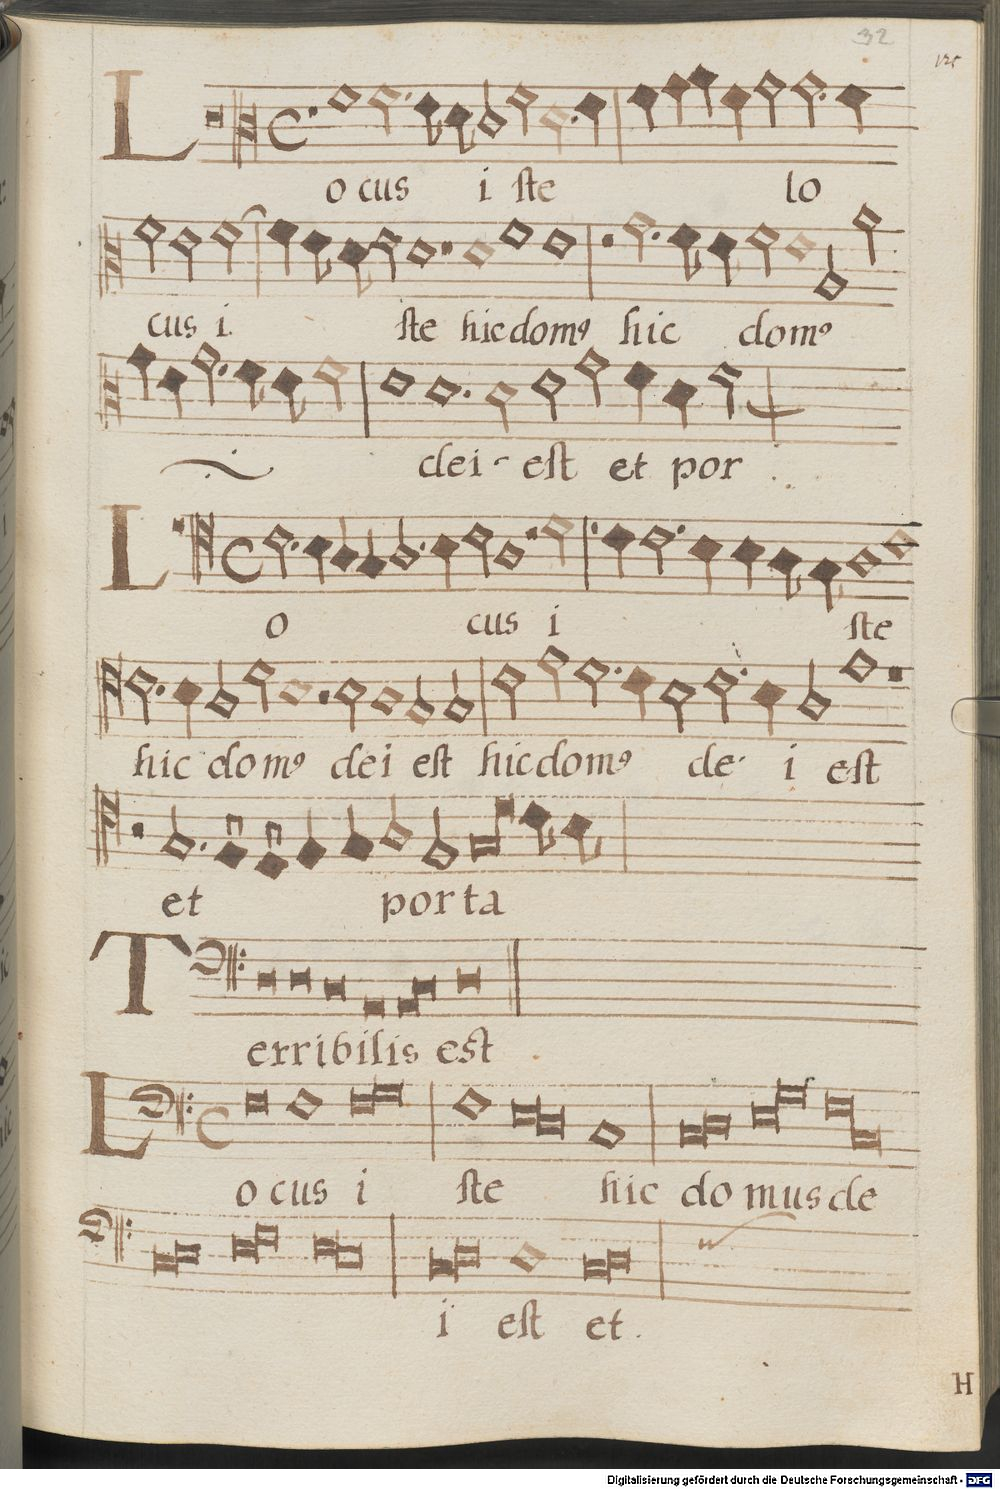 32
125
L
ocus iste lo
cus i. ste hic domꝰ hic domꝰ
dei est et por
L
o cus i ste
hic domꝰ dei est hic domꝰ de i est
et porta
T
erribilis est
L
ocus i ste hic domus de
i est et.
H
Digitalisierung gefördert durch die Deutsche Forschungsgemeinschaft - DFG